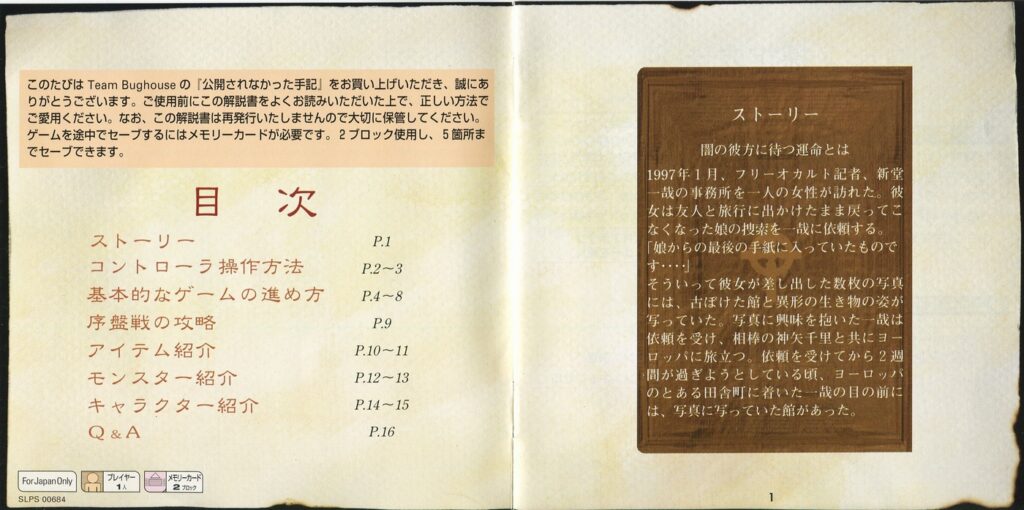 このたびは Team Bughouse の『公開されなかった手記』をお買い上げいただき、誠にあ
りがとうございます。ご使用前にこの解説書をよくお読みいただいた上で、正しい方法で
ご愛用ください。なお、この解説書は再発行いたしませんので大切に保管してください。
ゲームを途中でセーブするにはメモリーカードが必要です。2ブロック使用し、5箇所ま
でセーブできます。
目 次
ストーリー P.1
コントローラ操作方法 P.2〜3
基本的なゲームの進め方 P.4〜8
序盤戦の攻略 P.9
アイテム紹介 P.10〜11
モンスター紹介 P.12〜13
キャラクター紹介 P.14〜15
Q&A P.16
For Japan Only
プレイヤー
1人
メモリーカード
2ブロック
SLPS 00684
ストーリー
闇の彼方に待つ運命とは
1997年1月、フリーオカルト記者、新堂
一哉の事務所を一人の女性が訪れた。彼
女は友人と旅行に出かけたまま戻ってこ
なくなった娘の捜索を一哉に依頼する。
「娘からの最後の手紙に入っていたもので
す‥‥」
そういって彼女が差し出した数枚の写真
には、古ぼけた館と異形の生き物の姿が
写っていた。写真に興味を抱いた一哉は
依頼を受け、相棒の神矢千里と共にヨー
ロッパに旅立つ。依頼を受けてから2週
間が過ぎようとしている頃、ヨーロッパ
のとある田舎町に着いた一哉の目の前に
は、写真に写っていた館があった。
1